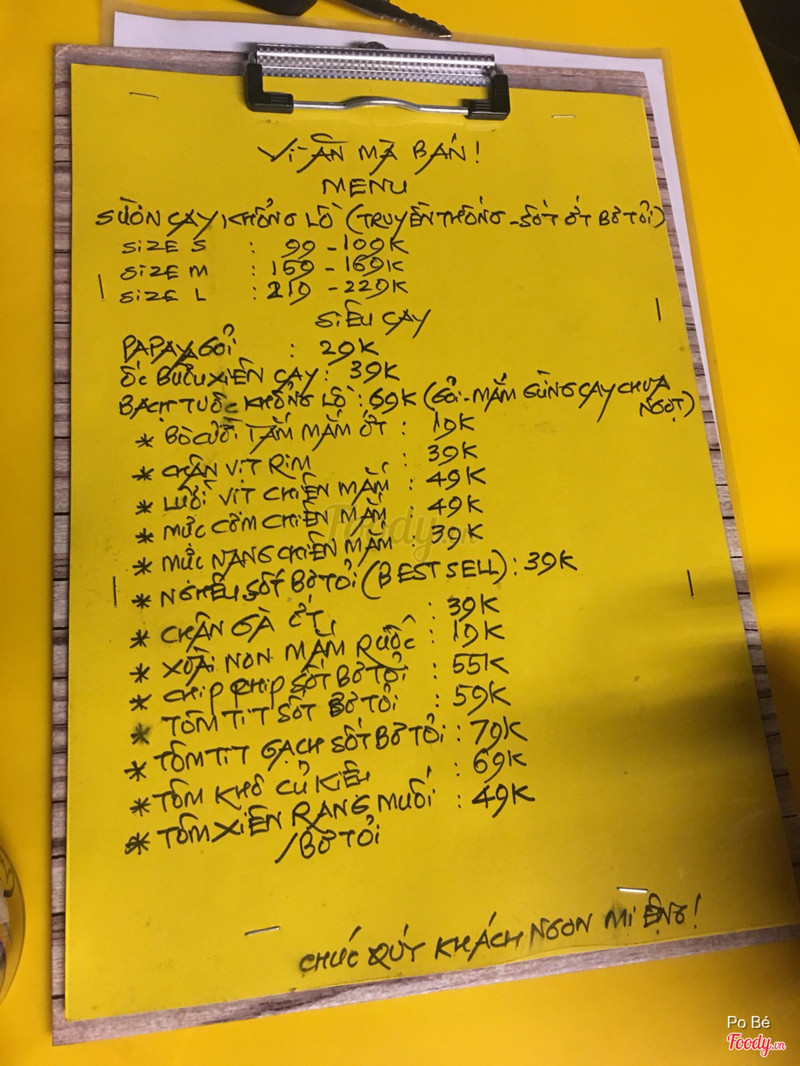 Vì-ĂN MÀ BÁN!
MENU
SƯỜN CAY KHỔNG LỒ (TRUYỀN THỐNG - SỐT ỚT BƠ TỎI)
SIZE S : 99 - 109K
SIZE M : 159 - 169K
SIZE L : 219 - 229K
SIÊU CAY
PAPAYA GỎI : 29K
ỐC BƯƠU XIÊN CAY : 39K
BẠCH TUỘC KHỔNG LỒ : 69K (GỎI - MẮM GỪNG CAY CHUA NGỌT)
* BÒ CƯỜI TẮM MẮM ỚT : 19K
* CHÂN VỊT RIM : 39K
* LƯỠI VỊT CHIÊN MẮM : 49K
* MỰC CƠM CHIÊN MẮM : 49K
* MỰC NANG CHIÊN MẮM : 39K
* NGHÊU SỐT BƠ TỎI (BEST SELL) : 39K
* CHÂN GÀ ỚT : 39K
* XOÀI NON MẮM RUỐC : 19K
* CHIP CHIP SỐT BƠ TỎI : 55K
* TÔM TÍT SỐT BƠ TỎI : 59K
* TÔM TÍT GẠCH SỐT BƠ TỎI : 79K
* TÔM KHÔ CỦ KIỆU : 69K
* TÔM XIÊN RANG MUỐI : 49K
/BƠ TỎI
CHÚC QUÝ KHÁCH NGON MIỆNG!
Foody.vn
Po Bé
Foody.vn